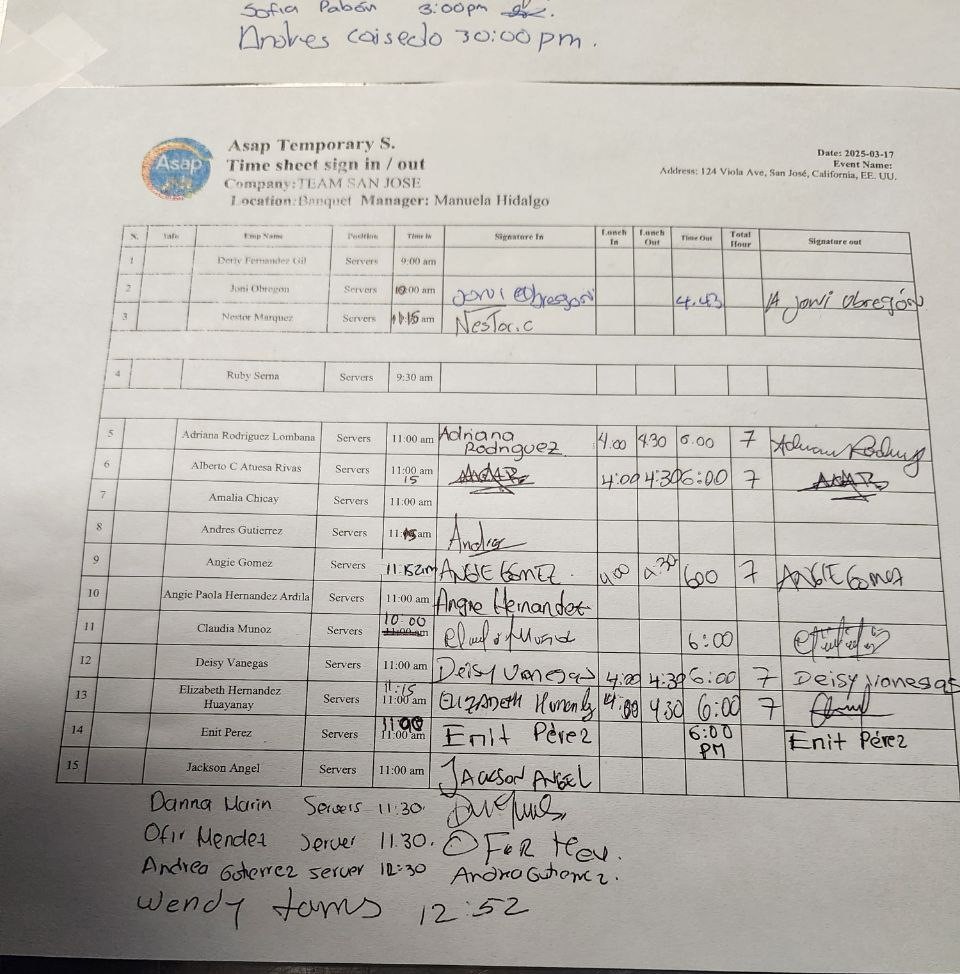 Sofia Pabón 3:00pm
Andres caisedo 30:00 pm.
Asap
Asap Temporary S.
Time sheet sign in / out
Company:TEAM SAN JOSE
Location:Banquet Manager: Manuela Hidalgo
Date: 2025-03-17
Event Name:
Address: 124 Viola Ave, San José, California, EE. UU.
N. Emp Name Position Time In Signature In Lunch In Lunch Out Time Out Total Hour Signature out
1 Deriv Fernandez Gil Servers 9:00 am
2 Joni Obregon Servers 10:00 am Joni Obregon 4.43 Joni Obregón
3 Nestor Marquez Servers 11:15 am Nestor.c
4 Ruby Serna Servers 9:30 am
5 Adriana Rodriguez Lombana Servers 11:00 am Adriana Rodriguez 4.00 4:30 6.00 7
6 Alberto C Atuesa Rivas Servers 11:00 am 15 4:00 4:30 6:00 7
7 Amalia Chicay Servers 11:00 am
8 Andres Gutierrez Servers 11:15 am
9 Angie Gomez Servers 11:15am ANGIE GOMEZ. 4:00 4:30 600 7 ANGIE Gomez
10 Angie Paola Hernandez Ardila Servers 11:00 am Angie Hernandez
11 Claudia Munoz Servers 10:00 11:00 am 6:00
12 Deisy Vanegas Servers 11:00 am Deisy Vanegas 4:00 4:30 6:00 7 Deisy Vanegas
13 Elizabeth Hernandez Huayanay Servers 11:15 11:00 am 4:00 4:30 6:00 7
14 Enit Perez Servers 11:00 11:00 am Enit Pérez 6:00 PM Enit Pérez
15 Jackson Angel Servers 11:00 am JACKSON ANGEL
Danna Marin Servers 11:30.
Ofir Mendez Server 11.30.
Andrea Gutierrez server 12:30 Andrea Gutierrez.
Wendy 12:52